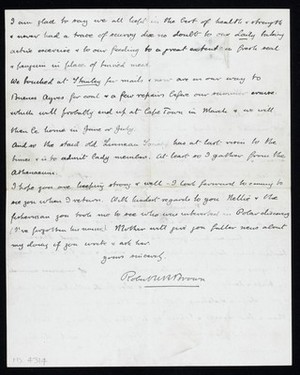 I am glad to say we all kept in the best of health & strength
& never had a trace of scurvy due no doubt to our daily taking
active exercise & to our feeding to a great extent on fresh seal
& penguin in place of tinned meat.
We touched at Stanley for mails & now are on our way to
Buenos Ayres for coal & a few repairs before our summer cruise
which will probably end up at Cape Town in March & we will
then be home in June or July.
And so the staid old Linnean Society has at last risen to the
times & is to admit lady members. At least so I gather from the
Athenaeum.
I hope you are keeping strong & well – I look forward to coming to
see you when I return. With kindest regards to you Nellie & the
fisherman you took me to see who was interested in Polar discovery
(I've forgotten his name). Mother will give you fuller news about
my doings if you write & ask her.
Yours sincerely
Brown